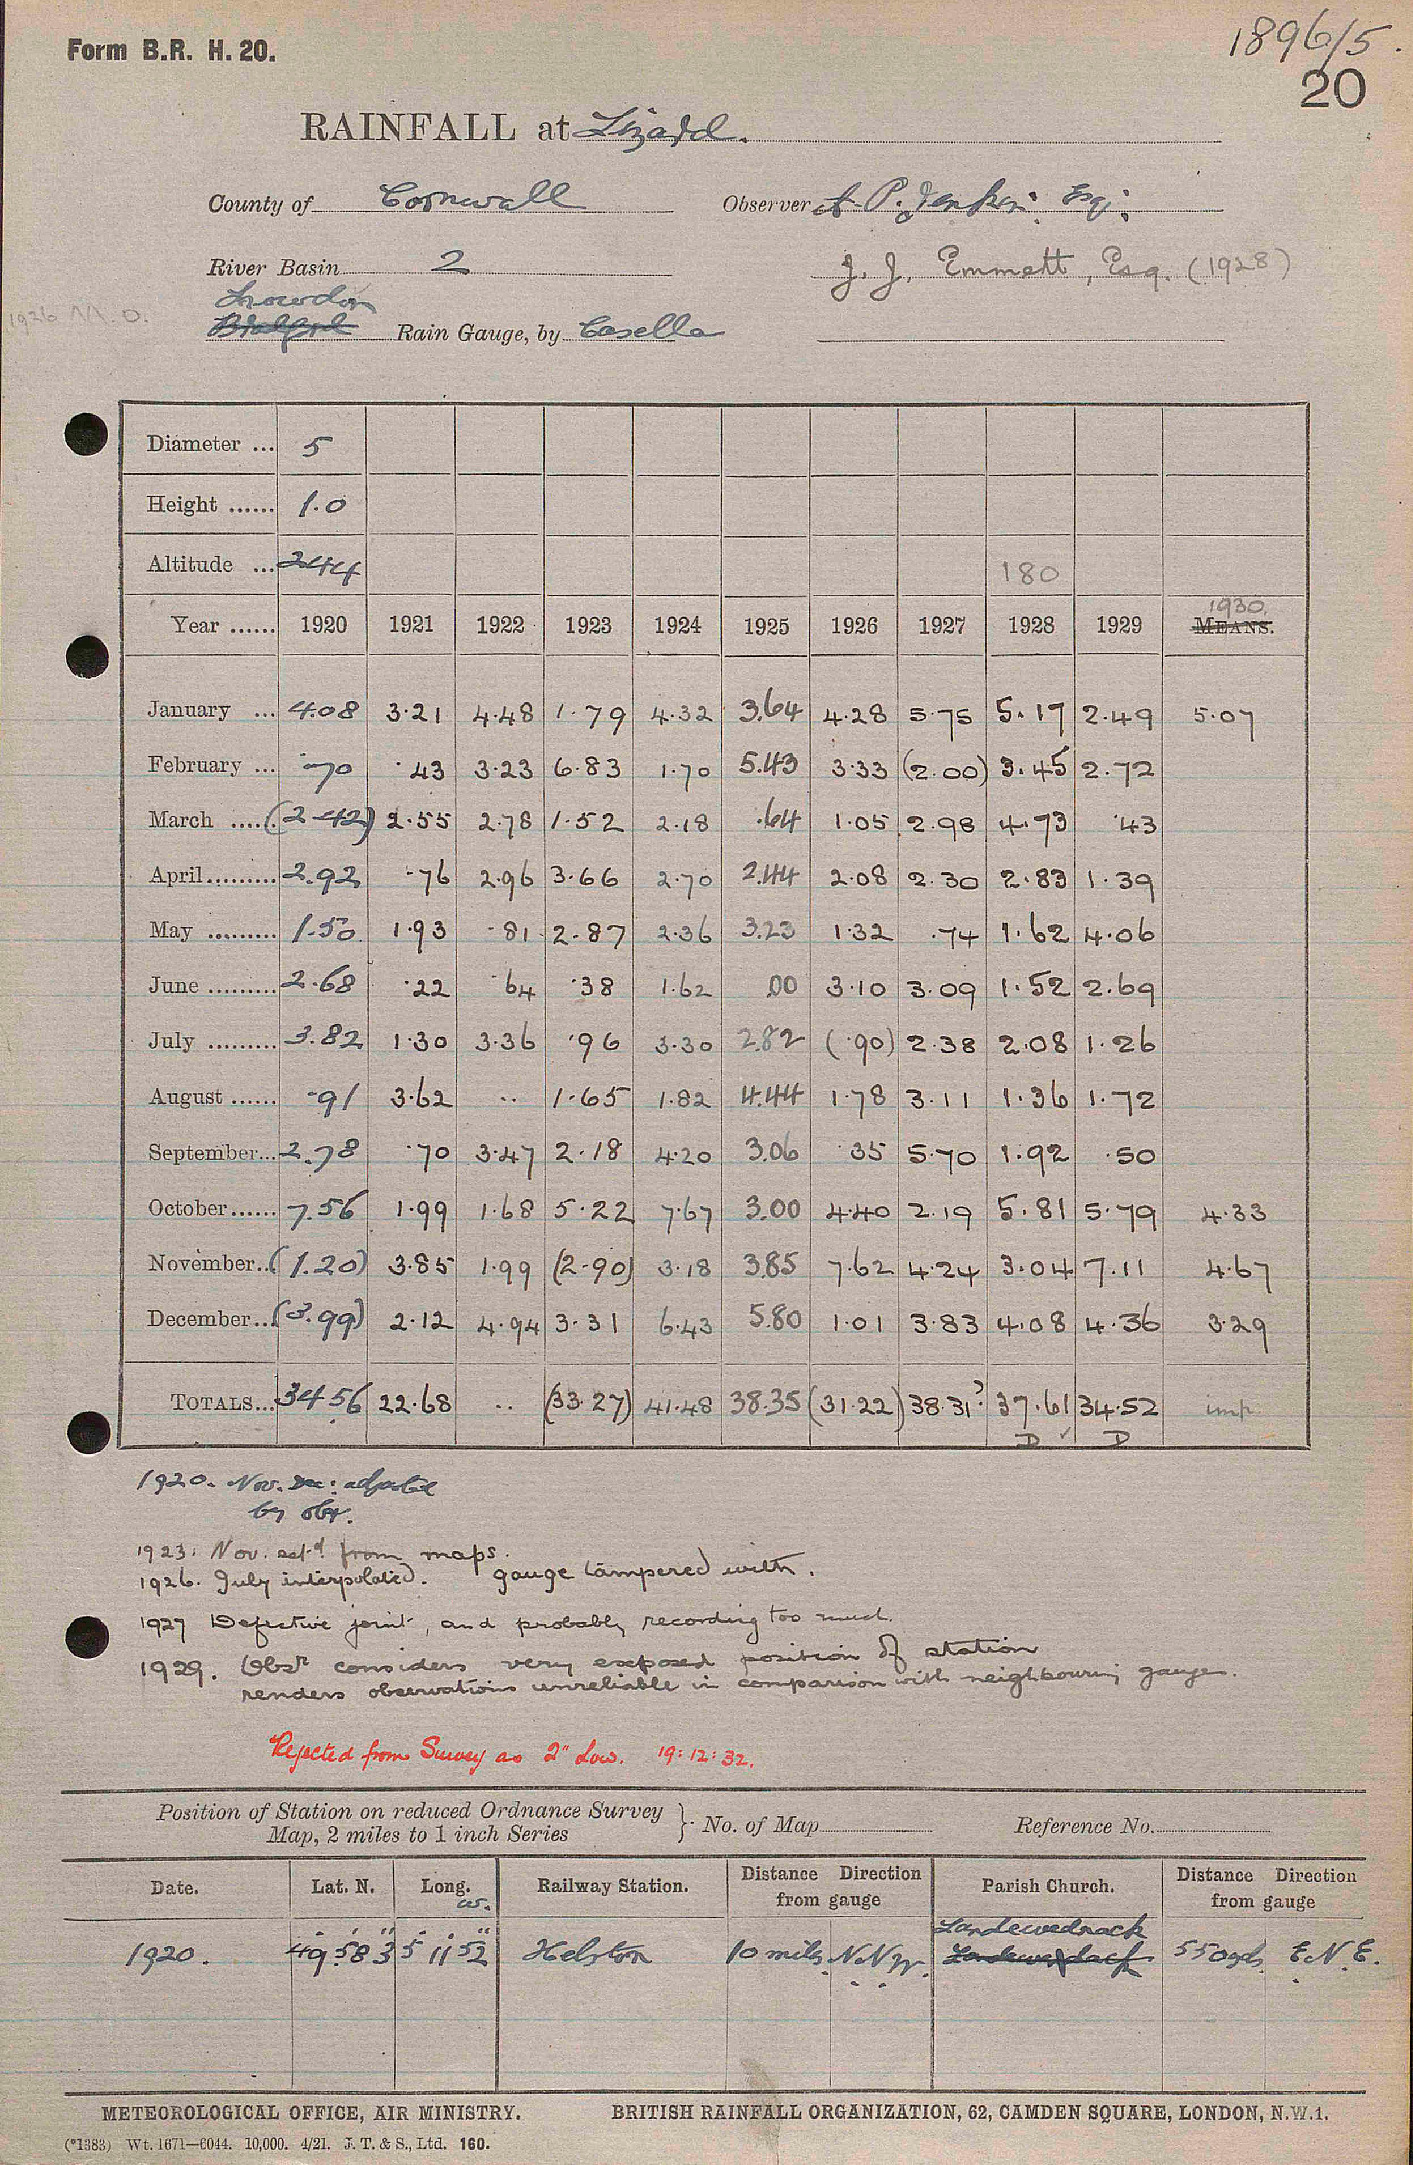 Form B.R. H. 20.
1896/5.
20
RAINFALL at Lizard.
County of Cornwall Observer A. P. Jenkin Esq:
River Basin 2 J. J. Emmett, Esq. (1928)
1926 M.O. Snowdon
Rain Gauge, by Casella
Diameter ... 5
Height ...... 1.0
Altitude ... 244 180
1930.
Year ...... 1920 1921 1922 1923 1924 1925 1926 1927 1928 1929 MEANS.
January ... 4.08 3.21 4.48 1.79 4.32 3.64 4.28 5.75 5.17 2.49 5.07
February ... .70 .43 3.23 6.83 1.70 5.43 3.33 (2.00) 3.45 2.72
March ..... (2.42) 2.55 2.78 1.52 2.18 .64 1.05 2.98 4.73 .43
April......... 2.92 .76 2.96 3.66 2.70 2.44 2.08 2.30 2.83 1.39
May ......... 1.50 1.93 .81 2.87 2.36 3.23 1.32 .74 1.62 4.06
June ......... 2.68 .22 .64 .38 1.62 .00 3.10 3.09 1.52 2.69
July ......... 3.82 1.30 3.36 .96 3.30 2.82 (.90) 2.38 2.08 1.26
August ...... .91 3.62 .. 1.65 1.82 4.44 1.78 3.11 1.36 1.72
September... 2.78 .70 3.47 2.18 4.20 3.06 .35 5.70 1.92 .50
October...... 7.56 1.99 1.68 5.22 7.67 3.00 4.40 2.19 5.81 5.79 4.33
November... (1.20) 3.85 1.99 (2.90) 3.18 3.85 7.62 4.24 3.04 7.11 4.67
December... (3.99) 2.12 4.94 3.31 6.43 5.80 1.01 3.83 4.08 4.36 3.29
TOTALS... 34.56 22.68 .. (33.27) 41.48 38.35 (31.22) 38.31? 37.61 34.52 imp.
D ✓ D
1920. Nov. Dec: adjusted
by obsr.
1923. Nov. estd from maps.
1926. July interpolated. gauge tampered with.
1927 Defective joint, and probably recording too much.
1929. Obsr considers very exposed position of station
renders observations unreliable in comparison with neighbouring gauges.
Rejected from Survey as 2" low. 19:12:32.
Position of Station on reduced Ordnance Survey
Map, 2 miles to 1 inch Series } No. of Map Reference No.
Date. Lat. N. Long. W. Railway Station. Distance Direction from gauge Parish Church. Distance Direction from gauge
Landewednack
1920. 49° 58' 3" 5° 11' 52" Helston 10 miles N.N.W. 550 yds. E.N.E.
METEOROLOGICAL OFFICE, AIR MINISTRY. BRITISH RAINFALL ORGANIZATION, 62, CAMDEN SQUARE, LONDON, N.W.1.
(*1383) Wt. 1671—6044. 10,000. 4/21. J. T. & S., Ltd. 160.